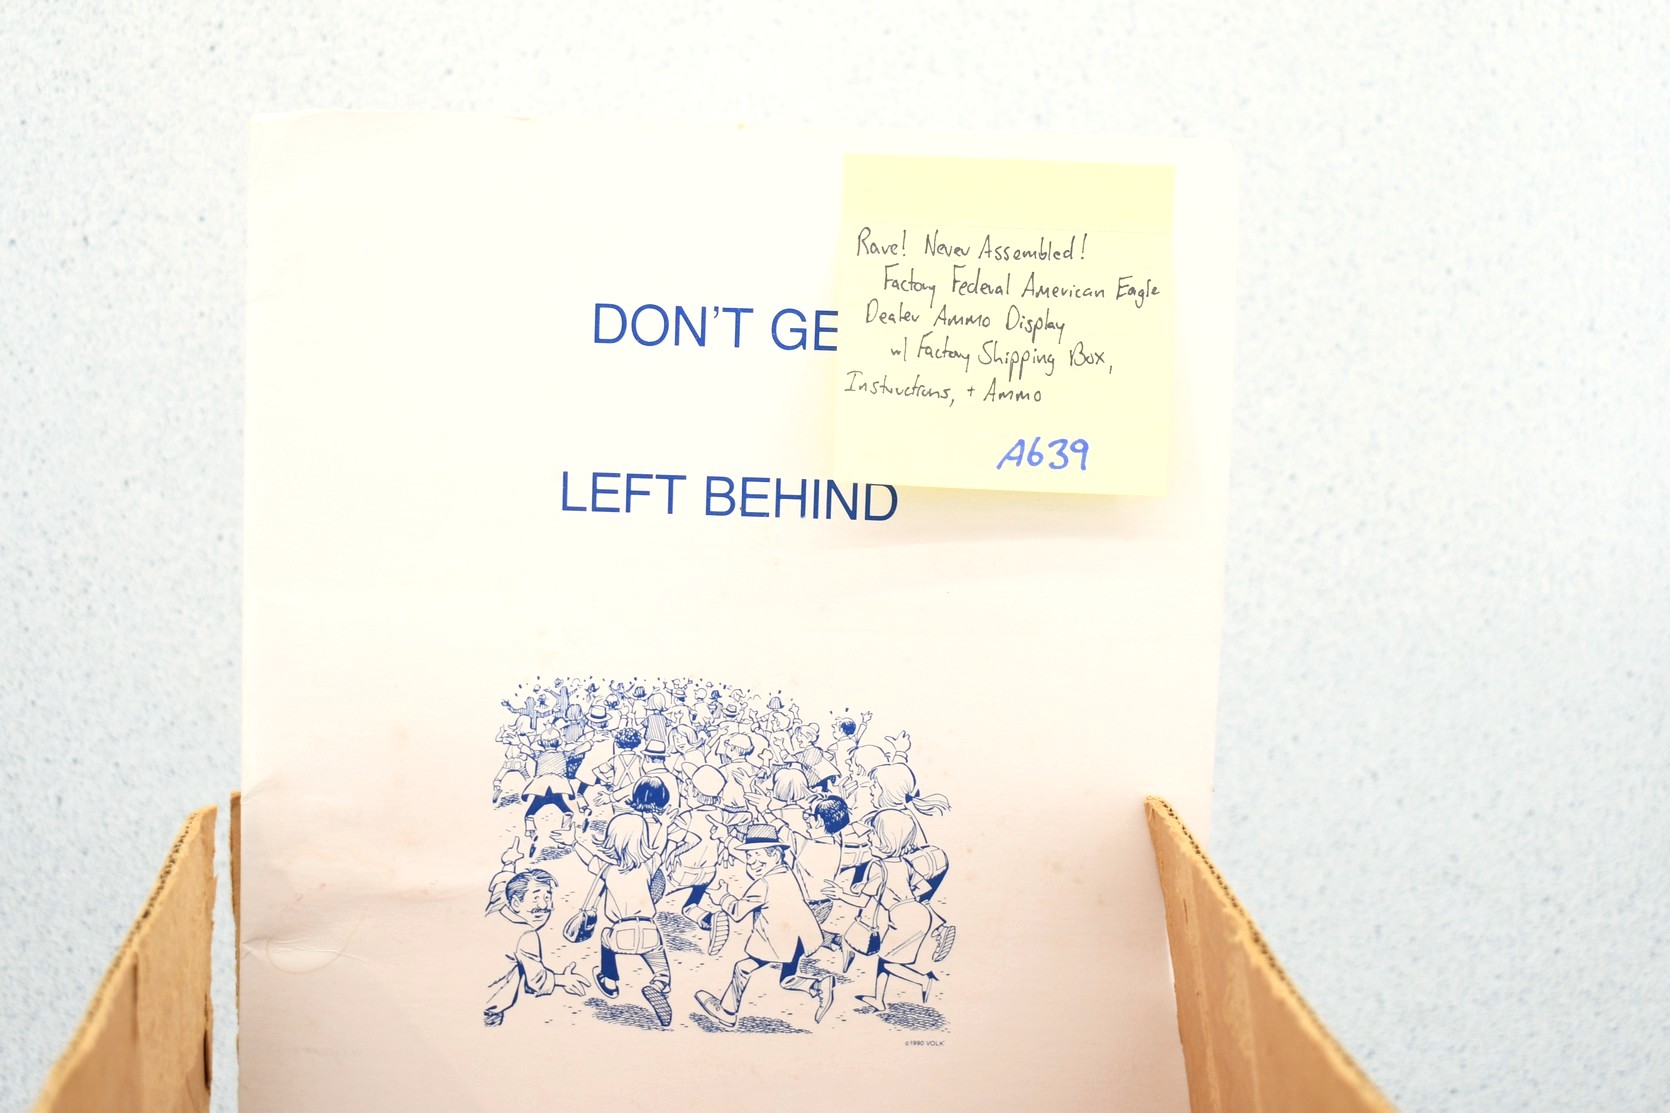 DON'T GE
LEFT BEHIND
Rare! Never Assembled!
Factory Federal American Eagle
Dealer Ammo Display
w/ Factory Shipping Box,
Instructions, + Ammo
A639
©1990 VOLK